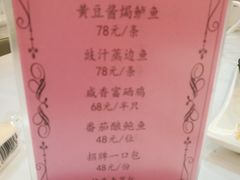 黄豆酱焗鲈鱼
78元/条
豉汁蒸边鱼
78元/条
咸香富硒鸡
68元/半只
番茄酿鲍鱼
48元/位
招牌一口包
48元/份